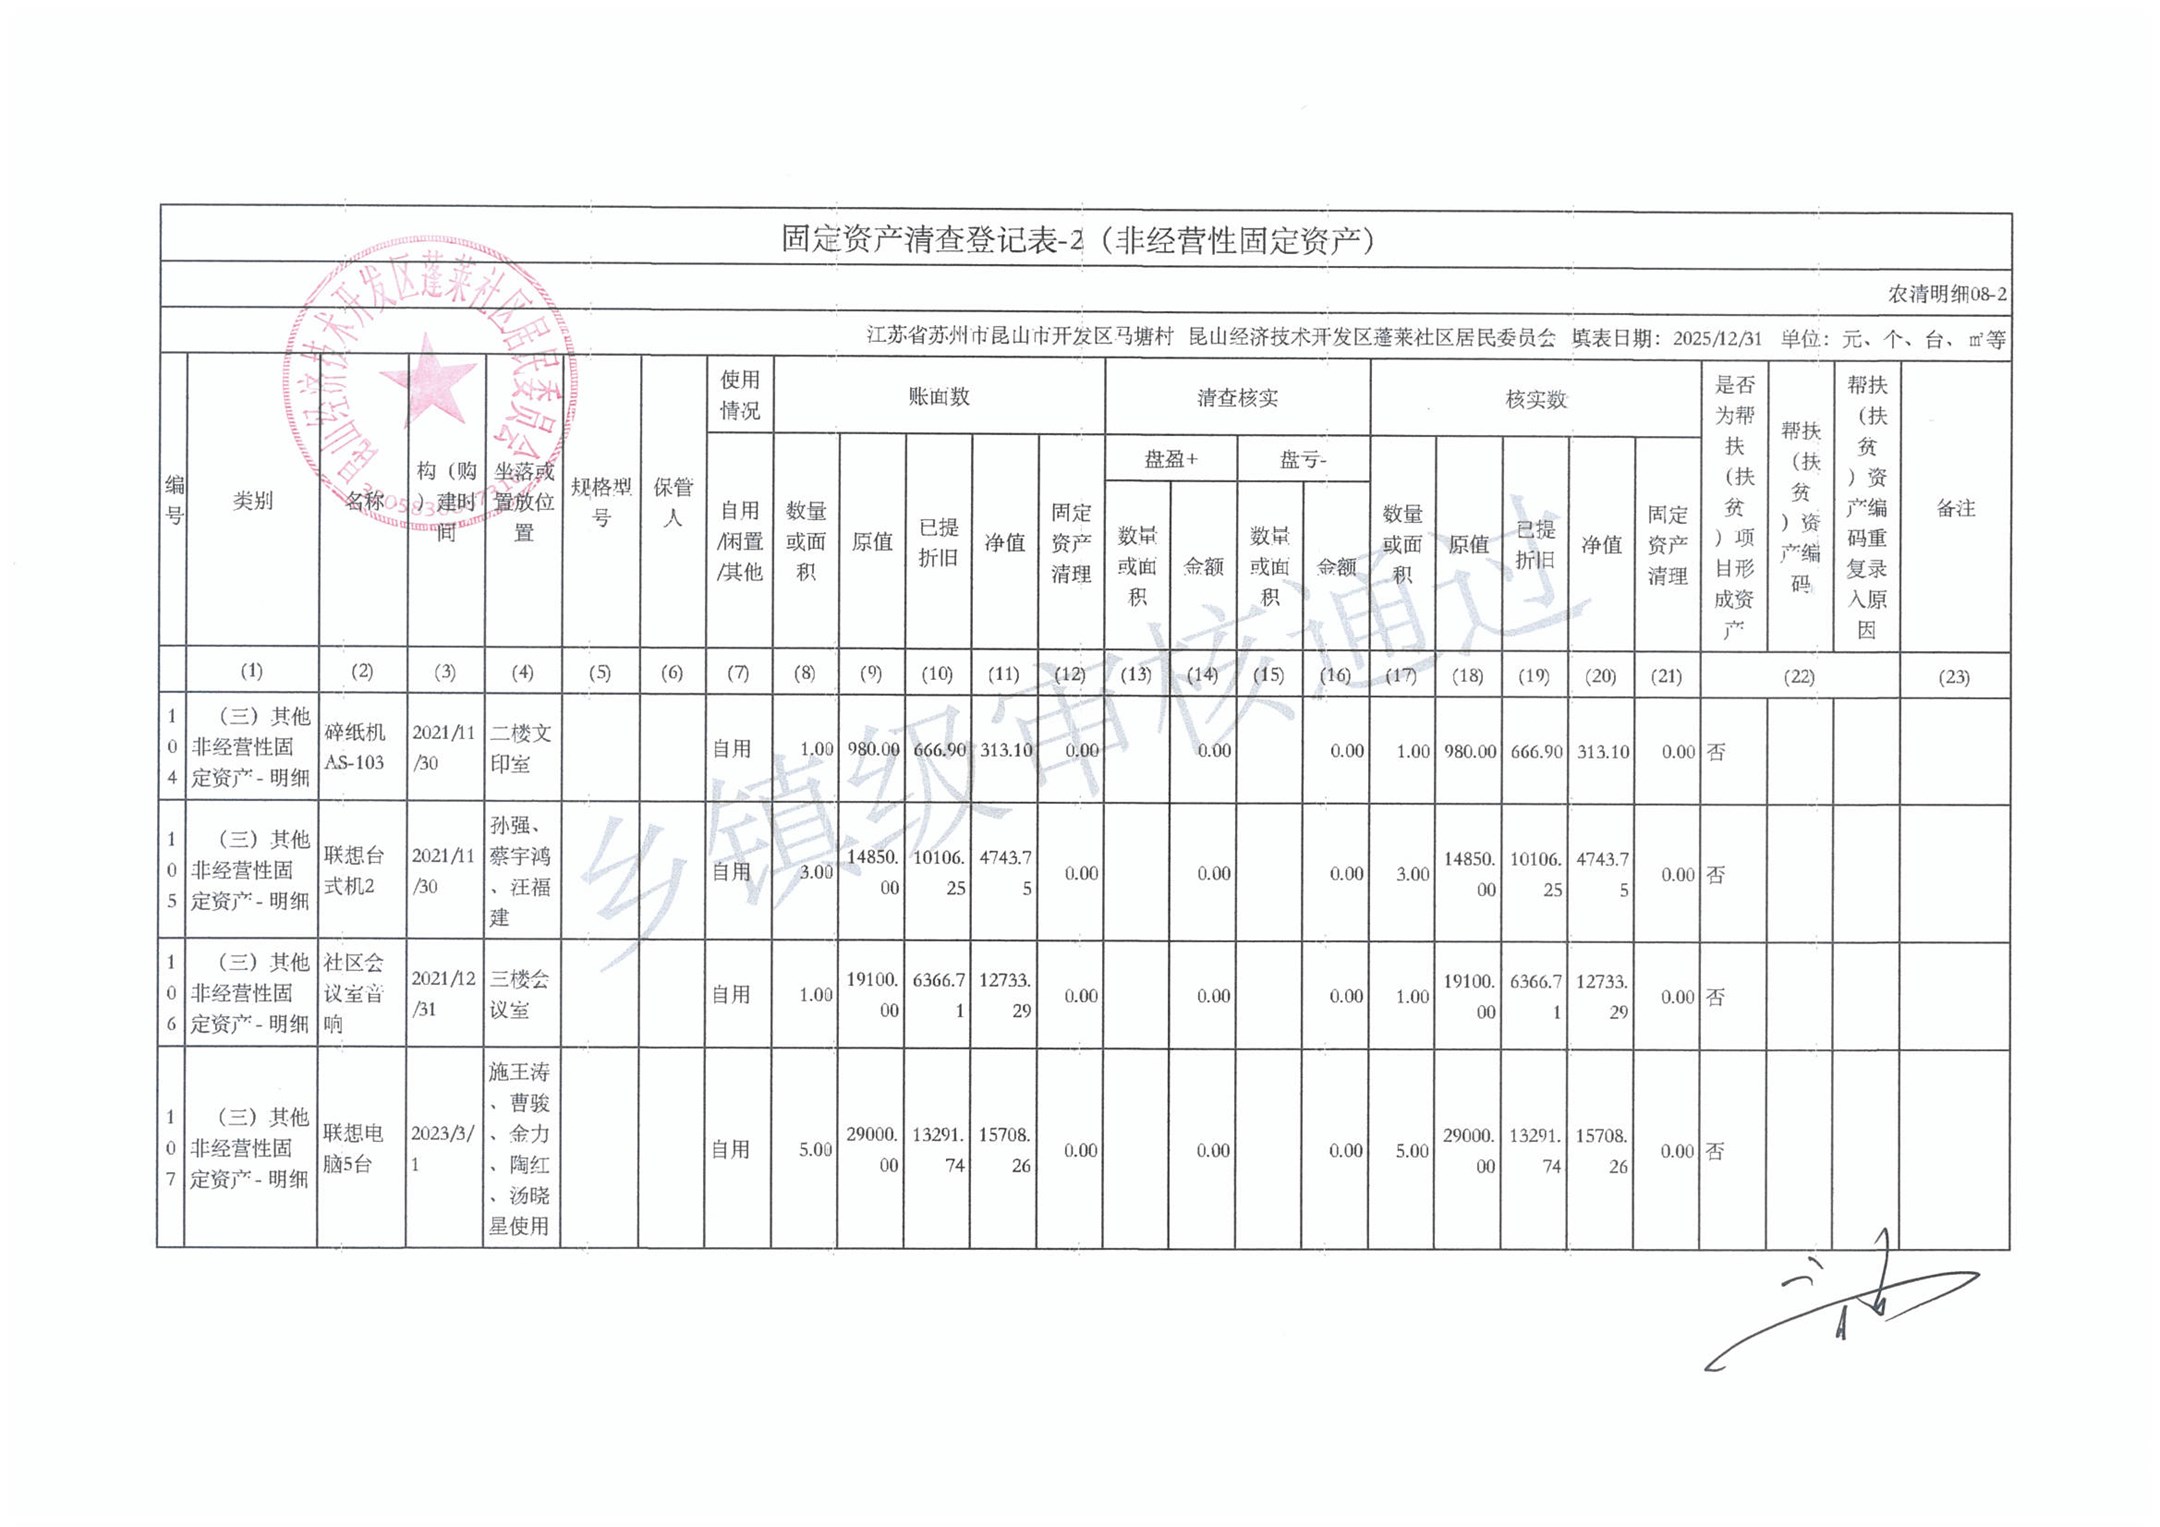 固定资产清查登记表-2（非经营性固定资产）
农清明细08-2
江苏省苏州市昆山市开发区马塘村 昆山经济技术开发区蓬莱社区居民委员会 填表日期：2025/12/31 单位：元、个、台、㎡等
编号 类别 名称 构（购）建时间 坐落或置放位置 规格型号 保管人 使用情况 账面数 清查核实 核实数 是否为帮扶（扶贫）项目形成资产 帮扶（扶贫）资产编码 帮扶（扶贫）资产编码重复录入原因 备注
盘盈+ 盘亏-
自用/闲置/其他 数量或面积 原值 已提折旧 净值 固定资产清理 数量或面积 金额 数量或面积 金额 数量或面积 原值 已提折旧 净值 固定资产清理
(1) (2) (3) (4) (5) (6) (7) (8) (9) (10) (11) (12) (13) (14) (15) (16) (17) (18) (19) (20) (21) (22) (23)
104 （三）其他非经营性固定资产-明细 碎纸机AS-103 2021/11/30 二楼文印室 自用 1.00 980.00 666.90 313.10 0.00 0.00 0.00 1.00 980.00 666.90 313.10 0.00 否
105 （三）其他非经营性固定资产-明细 联想台式机2 2021/11/30 孙强、蔡宇鸿、汪福建 自用 3.00 14850.00 10106.25 4743.75 0.00 0.00 0.00 3.00 14850.00 10106.25 4743.75 0.00 否
106 （三）其他非经营性固定资产-明细 社区会议室音响 2021/12/31 三楼会议室 自用 1.00 19100.00 6366.71 12733.29 0.00 0.00 0.00 1.00 19100.00 6366.71 12733.29 0.00 否
107 （三）其他非经营性固定资产-明细 联想电脑5台 2023/3/1 施王涛、曹骏、金力、陶红、汤晓星使用 自用 5.00 29000.00 13291.74 15708.26 0.00 0.00 0.00 5.00 29000.00 13291.74 15708.26 0.00 否
乡镇级审核通过
昆山经济技术开发区蓬莱社区居民委员会